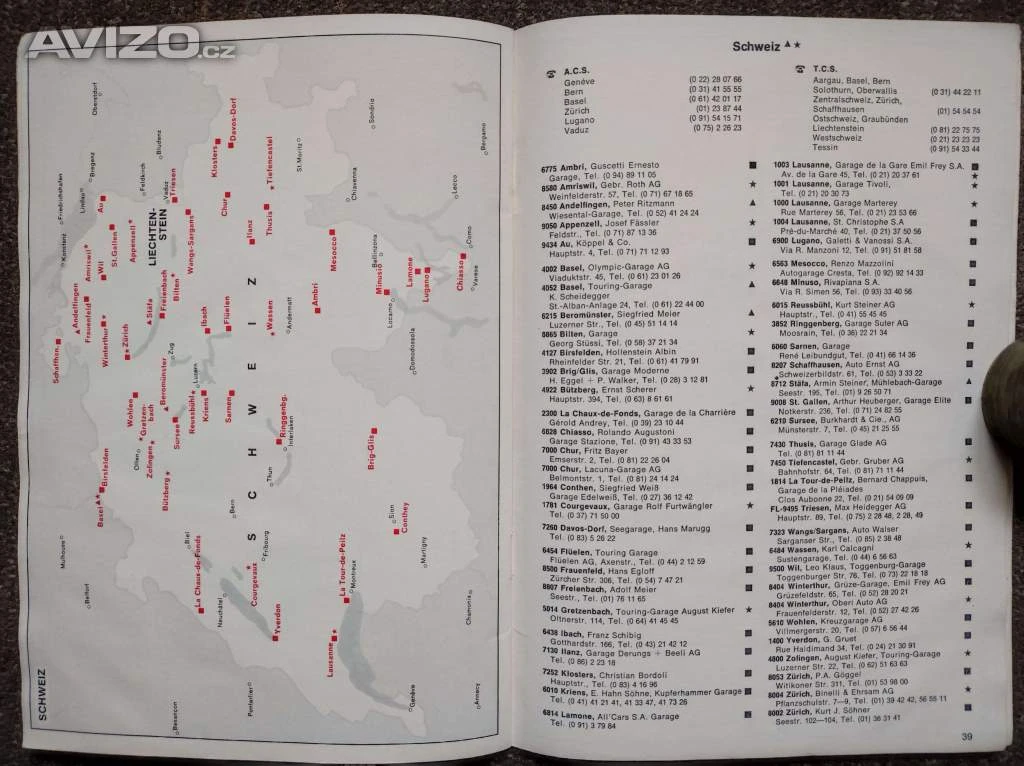 AVIZO.cz
SCHWEIZ
Oberstdorf
Bregenz
Lindau
Friedrichshafen
Konstanz
Bludenz
Feldkirch
Vaduz
Triesen
LIECHTEN-
STEIN
Au
St.Gallen
Appenzell
Wil
Amriswil
Andelfingen
Frauenfeld
Winterthur
Zürich
Schaffhsn.
Stäfa
Freienbach
Bilten
Wangs-Sargans
Klosters
Davos-Dorf
Chur
Tiefencastel
Thusis
Ilanz
St.Moritz
Sondrio
Bergamo
Chiavenna
Lecco
Mesocco
Bellinzona
Como
Varese
Chiasso
Lugano
Lamone
Minusio
Locarno
Domodossola
Ambri
Wassen
Andermatt
Flüelen
Ibach
Zug
Luzern
Beromünster
Reussbühl
Kriens
Sarnen
Sursee
Wohlen
Gretzen-
bach
Zofingen
Olten
Bützberg
Birsfelden
Basel
Ringgenbg.
Interlaken
Thun
Brig-Glis
Bern
SCHWEIZ
Fribourg
Biel
La Chaux-de-Fonds
Neuchâtel
Courgevaux
Yverdon
La Tour-de-Peilz
Montreux
Sion
Conthey
Martigny
Lausanne
Mulhouse
Belfort
Besancon
Pontarlier
Genève
Annecy
Chamonix
Schweiz
A.C.S.
Genéve (0 22) 28 07 66
Bern (0 31) 41 55 55
Basel (0 61) 42 01 17
Zürich (01) 23 87 44
Lugano (0 91) 54 15 71
Vaduz (0 75) 2 26 23
T.C.S.
Aargau, Basel, Bern
Solothurn, Oberwallis (0 31) 44 22 11
Zentralschweiz, Zürich,
Schaffhausen (01) 54 54 54
Ostschweiz, Graubünden
Liechtenstein (0 81) 22 75 75
Westschweiz (0 21) 23 23 23
Tessin (0 91) 54 33 44
6775 Ambri, Guscetti Ernesto
Garage, Tel. (0 94) 89 11 05
8580 Amriswil, Gebr. Roth AG
Weinfelderstr. 57, Tel. (0 71) 67 18 65
8450 Andelfingen, Peter Ritzmann
Wiesental-Garage, Tel. (0 52) 41 24 24
9050 Appenzell, Josef Fässler
Feldstr., Tel. (0 71) 87 13 36
9434 Au, Köppel & Co.
Hauptstr. 4, Tel. (0 71) 71 12 93
4002 Basel, Olympic-Garage AG
Viaduktstr. 45, Tel. (0 61) 23 01 26
4052 Basel, Touring-Garage
K. Scheidegger
St.-Alban-Anlage 24, Tel. (0 61) 22 44 00
6215 Beromünster, Siegfried Meier
Luzerner Str., Tel. (0 45) 51 14 14
8865 Bilten, Garage
Georg Stüssi, Tel. (0 58) 37 21 34
4127 Birsfelden, Hollenstein Albin
Rheinfelder Str. 21, Tel. (0 61) 41 79 91
3902 Brig/Glis, Garage Moderne
H. Eggel + P. Walker, Tel. (0 28) 3 12 81
4922 Bützberg, Ernst Scherer
Hauptstr. 394, Tel. (0 63) 8 61 61
2300 La Chaux-de-Fonds, Garage de la Charrière
Gérold Andrey, Tel. (0 39) 23 10 44
6828 Chiasso, Rolando Augustoni
Garage Stazione, Tel. (0 91) 43 33 53
7000 Chur, Fritz Bayer
Emserstr. 2, Tel. (0 81) 22 26 04
7000 Chur, Lacuna-Garage AG
Belmontstr. 1, Tel. (0 81) 24 14 24
1964 Conthen, Siegfried Weiß
Garage Edelweiß, Tel. (0 27) 36 12 42
1781 Courgevaux, Garage Rolf Furtwängler
Tel. (0 37) 71 50 00
7260 Davos-Dorf, Seegarage, Hans Marugg
Tel. (0 83) 5 26 22
6454 Flüelen, Touring Garage
Flüelen AG, Axenstr., Tel. (0 44) 2 12 59
8500 Frauenfeld, Hans Egloff
Zürcher Str. 306, Tel. (0 54) 7 47 21
8807 Freienbach, Adolf Meier
Seestr., Tel. (01) 76 11 65
5014 Gretzenbach, Touring-Garage August Kiefer
Oltnerstr. 114, Tel. (0 64) 41 45 45
6438 Ibach, Franz Schibig
Gotthardstr. 166, Tel. (0 43) 21 42 12
7130 Ilanz, Garage Derungs + Beeli AG
Tel. (0 86) 2 23 18
7252 Klosters, Christian Bordoli
Hauptstr., Tel. (0 83) 4 16 96
6010 Kriens, E. Hahn Söhne, Kupferhammer Garage
Tel. (0 41) 41 21 41, 41 33 47, 41 73 26
6814 Lamone, All'Cars S.A. Garage
Tel. (0 91) 3 79 84
1003 Lausanne, Garage de la Gare Emil Frey S.A.
Av. de la Gare 45, Tel. (0 21) 20 37 61
1001 Lausanne, Garage Tivoli,
Tel. (0 21) 20 30 73
1000 Lausanne, Garage Marterey
Rue Marterey 56, Tel. (0 21) 23 53 66
1004 Lausanne, St. Christophe S.A
Pré-du-Marché 40, Tel. (0 21) 37 50 56
6900 Lugano, Galetti & Vanossi S.A.
Via R. Manzoni 12, Tel. (0 91) 51 81 58
6563 Mesocco, Renzo Mazzolini
Autogarage Cresta, Tel. (0 92) 92 14 33
6648 Minuso, Rivapiana S.A.
Via R. Simen 56, Tel. (0 93) 33 40 56
6015 Reussbühl, Kurt Steiner AG
Hauptstr., Tel. (0 41) 55 45 45
3852 Ringgenberg, Garage Suter AG
Moosrain, Tel. (0 36) 22 21 34
6060 Sarnen, Garage
René Leibundgut, Tel. (0 41) 66 14 36
8207 Schaffhausen, Auto Ernst AG
Schweizerbildstr. 61, Tel. (0 53) 3 33 22
8712 Stäfa, Armin Steiner, Mühlebach-Garage
Seestr. 195, Tel. (01) 9 26 50 71
9008 St. Gallen, Arthur Heuberger, Garage Elite
Notkerstr. 236, Tel. (0 71) 24 82 55
6210 Sursee, Burkhardt & Cie., AG
Münsterstr. 7, Tel. (0 45) 21 25 55
7430 Thusis, Garage Glade AG
Tel. (0 81) 81 11 44
7450 Tiefencastel, Gebr. Gruber AG
Bahnhofstr. 64, Tel. (0 81) 71 11 44
1814 La Tour-de-Peilz, Bernard Chappuis,
Garage de la Pléiades
Clos Aubonne 22, Tel. (0 21) 54 09 09
FL-9495 Triesen, Max Heidegger AG
Hauptstr. 89, Tel. (0 75) 2 28 48, 2 28, 49
7323 Wangs/Sargans, Auto Walser
Sarganser Str., Tel. (0 85) 2 38 48
6484 Wassen, Karl Calcagni
Sustengarage, Tel. (0 44) 6 56 63
9500 Wil, Leo Klaus, Toggenburg-Garage
Toggenburger Str. 76, Tel. (0 73) 22 18 18
8404 Winterthur, Grüze-Garage, Emil Frey AG
Grüzefeldstr. 65, Tel. (0 52) 28 20 21
8404 Winterthur, Oberi Auto AG
Frauenfelderstr. 12, Tel. (0 52) 27 42 26
5610 Wohlen, Kreuzgarage AG
Villmergerstr. 20, Tel. (0 57) 6 56 44
1400 Yverdon, G. Gruet
Rue Haldimand 34, Tel. (0 24) 21 30 91
4800 Zofingen, August Kiefer, Touring-Garage
Luzerner Str. 22, Tel. (0 62) 51 63 63
8053 Zürich, P.A. Göggel
Witikoner Str. 311, Tel. (01) 53 98 00
8004 Zürich, Binelli & Ehrsam AG
Pflanzschulstr. 7—9, Tel. (01) 39 42 42, 56 55 11
8002 Zürich, Kurt J. Söhner
Seestr. 102—104, Tel. (01) 36 31 41
39